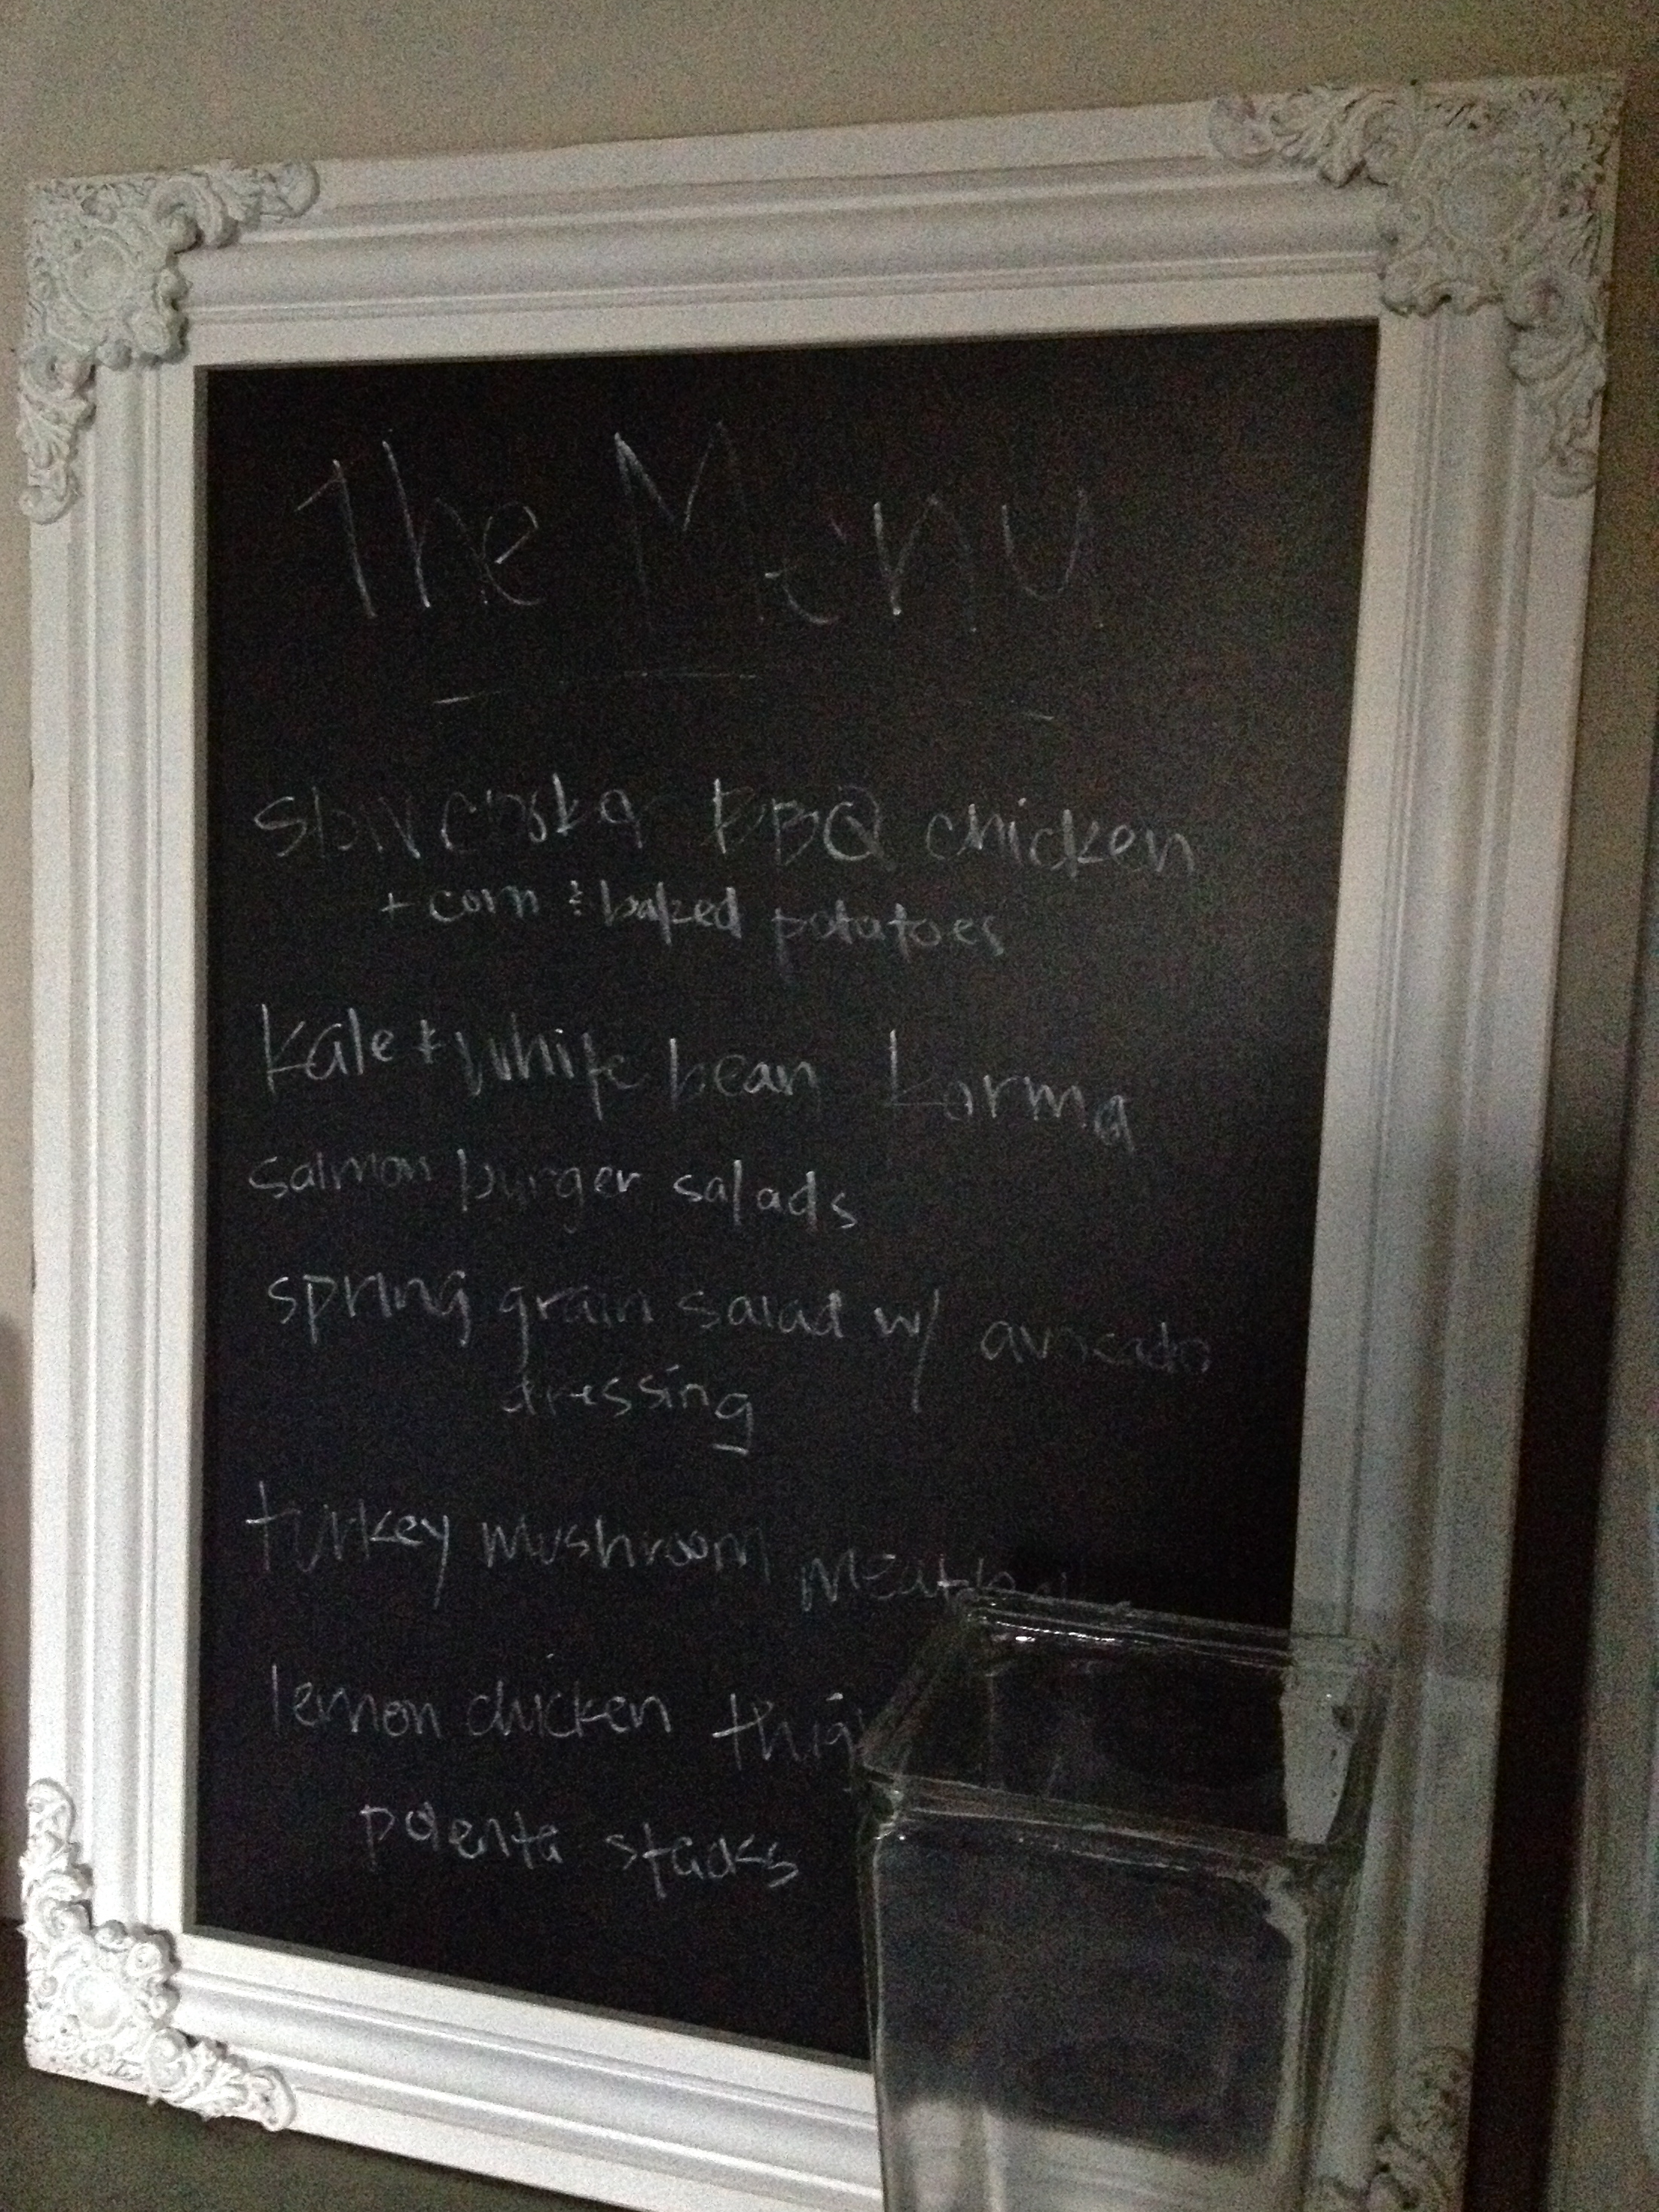 The Menu
slow cooker BBQ chicken
+ corn & baked potatoes
kale & white bean korma
salmon burger salads
spring grain salad w/ avocado
dressing
turkey mushroom meatball
lemon chicken thig
polenta stacks